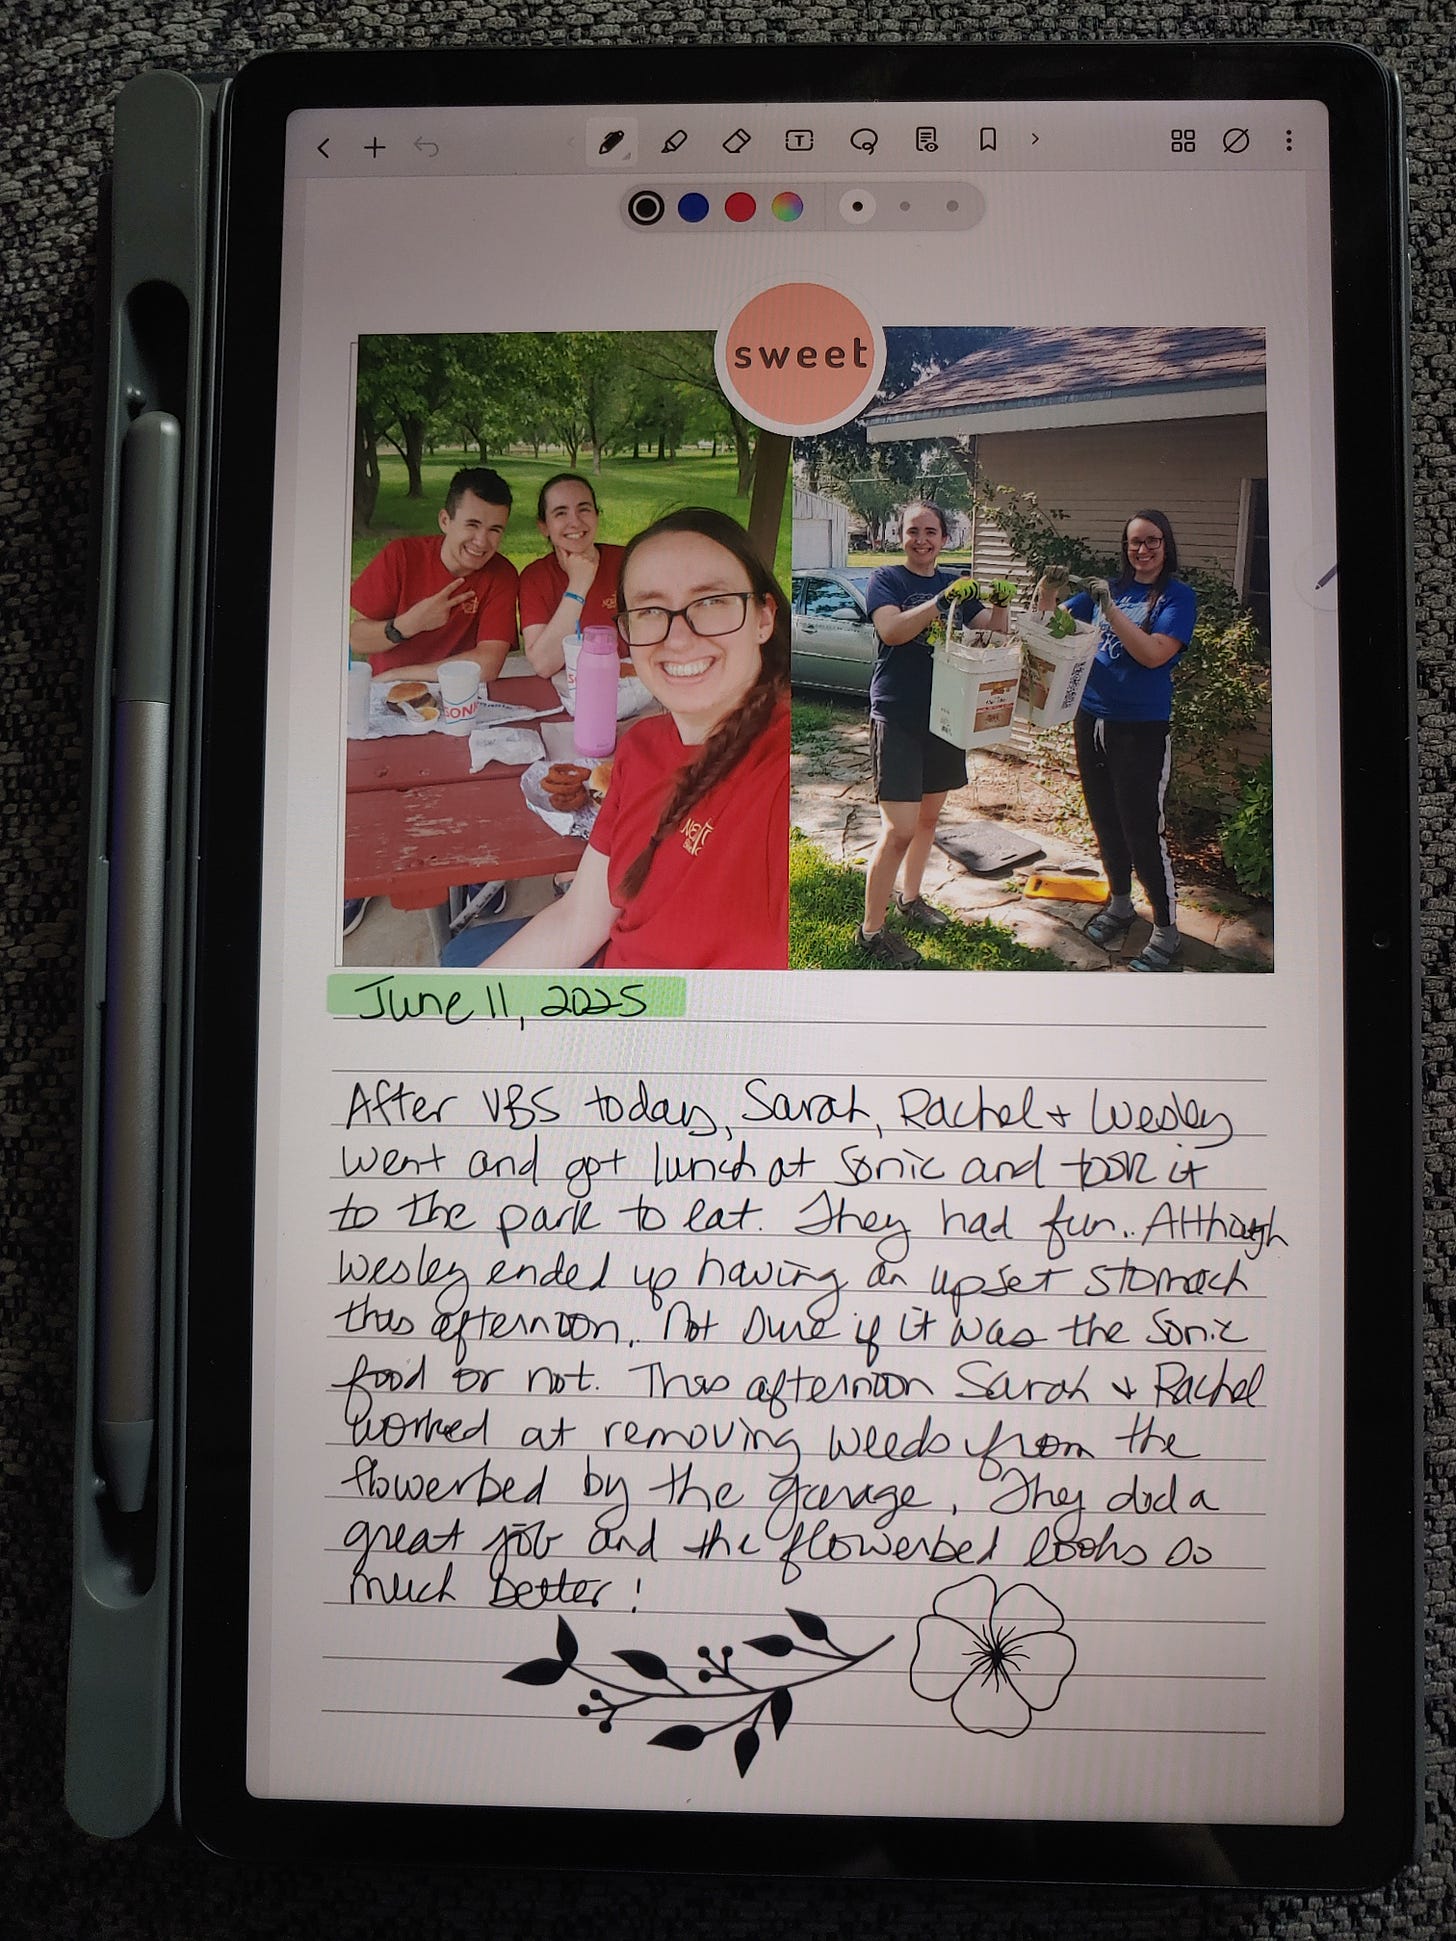 T
sweet
SONIC
June 11, 2025
After VBS today, Sarah, Rachel + Wesley
went and got lunch at Sonic and took it
to the park to eat. They had fun.. Although
Wesley ended up having an upset stomach
this afternoon. Not sure if it was the Sonic
food or not. This afternoon Sarah + Rachel
worked at removing weeds from the
flowerbed by the garage. They did a
great job and the flowerbed looks so
much better!